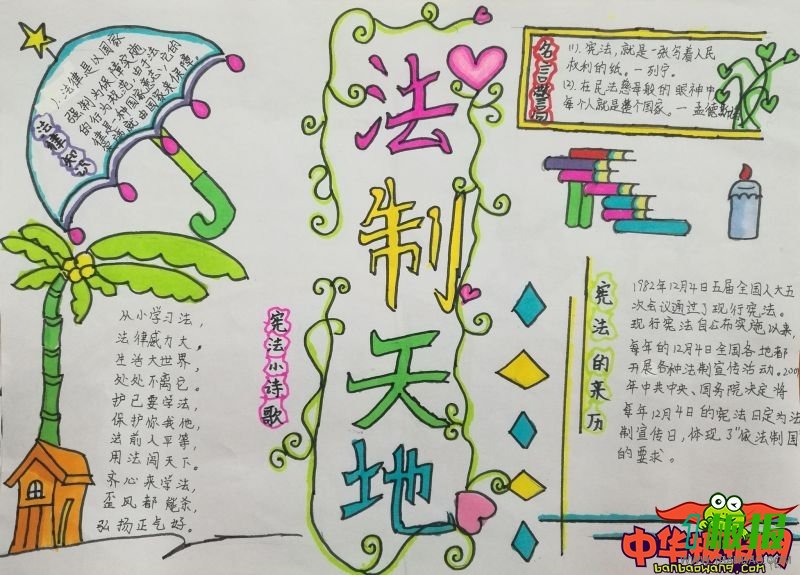 法律知识
1.法律是以国家
强制力保障实施
的行为规范,由于法
律是和国家意志,它的
法制天地
名言警句
(1).宪法,就是一张写着人民
权利的纸。—列宁。
(2).在民法慈母般的眼神中
每个人就是整个国家。—孟德斯鸠
宪法小诗歌
从小学习法,
法律威力大。
生活大世界,
处处不离它。
护己要学法,
保护你我他,
法前人平等,
用法闯天下。
齐心来学法,
歪风都能杀,
弘扬正气好。
宪法的来历
1982年12月4日五届全国人大五
次会议通过了现行宪法。
现行宪法自公布实施以来,
每年的12月4日全国各地都
开展各种法制宣传活动.200
年中共中央、国务院决定将
每年12月4日的宪法日定为法
制宣传日,体现了"依法制国
的要求。
中华板报网
banbaowang.com